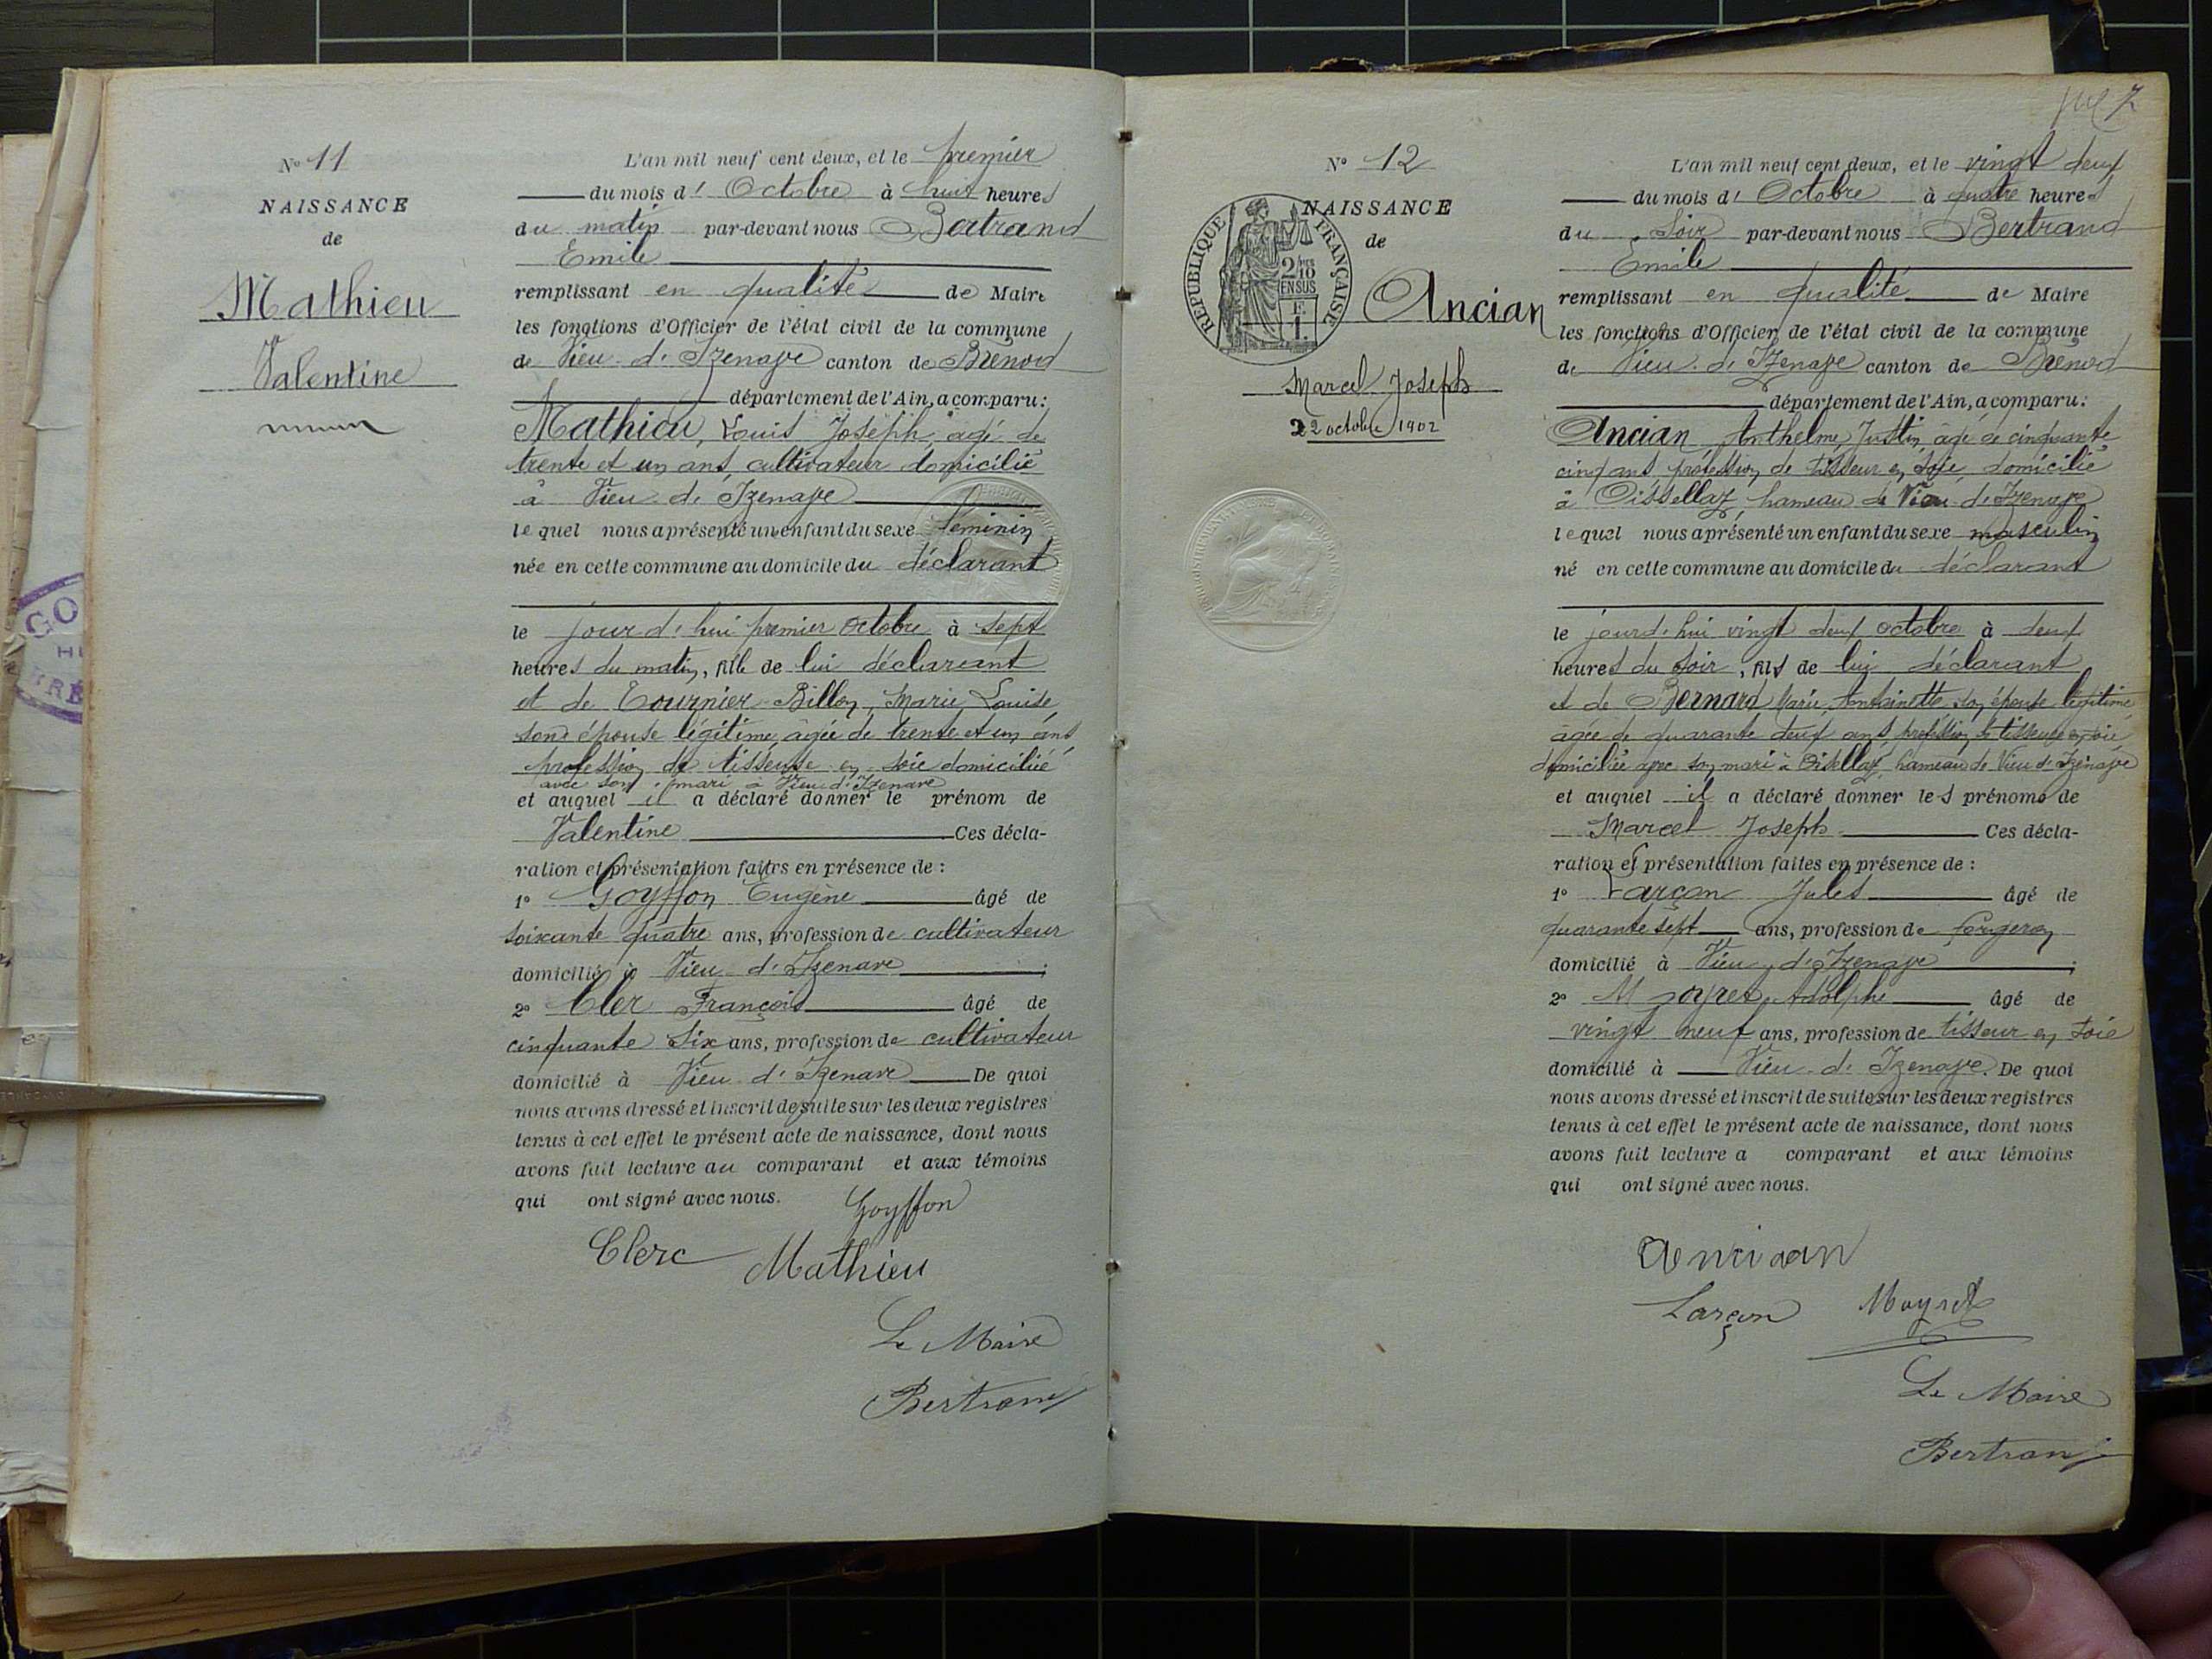 Nº 11
NAISSANCE
de
Mathieu
Valentine
L'an mil neuf cent deux, et le premier
du mois d' Octobre à huit heures
du matin par-devant nous Bertrand
Emile
remplissant en qualité de Maire
les fonctions d'Officier de l'état civil de la commune
de Vieu d'Izenave canton de Brénod
département de l'Ain, a comparu:
Mathieu, Louis Joseph, âgé de
trente et un ans, cultivateur domicilié
à Vieu d'Izenave
lequel nous a présenté un enfant du sexe féminin
née en cette commune au domicile du déclarant
le jour d'hui premier octobre à sept
heures du matin, fille de lui déclarant
et de Tournier-Billon, Marie Louise
son épouse légitime, âgée de trente et un ans
profession de tisseuse en soie domiciliée
avec son mari à Vieu d'Izenave
et auquel il a déclaré donner le prénom de
Valentine Ces décla-
ration et présentation faites en présence de :
1º Goyffon Eugène âgé de
soixante quatre ans, profession de cultivateur
domicilié à Vieu d'Izenave ;
2º Cler François âgé de
cinquante six ans, profession de cultivateur
domicilié à Vieu d'Izenave De quoi
nous avons dressé et inscrit de suite sur les deux registres
tenus à cet effet le présent acte de naissance, dont nous
avons fait lecture au comparant et aux témoins
qui ont signé avec nous. Goyffon
Clerc Mathieu
Le Maire
Bertrand
7
Nº 12
NAISSANCE
de
RÉPUBLIQUE FRANÇAISE
2/10
EN SUS
F.
1.
Ancian
Marcel Joseph
22 octobre 1902
L'an mil neuf cent deux, et le vingt deux
du mois d' Octobre à quatre heures
du soir par-devant nous Bertrand
Emile
remplissant en qualité de Maire
les fonctions d'Officier de l'état civil de la commune
de Vieu d'Izenave canton de Brénod
département de l'Ain, a comparu:
Ancian Anthelme Justin âgé de cinquante
cinq ans, profession de tisseur en soie, domicilié
à Oissellaz, hameau de Vieu d'Izenave
lequel nous a présenté un enfant du sexe masculin
né en cette commune au domicile du déclarant
le jourd'hui vingt deux octobre à deux
heures du soir, fils de lui déclarant
et de Bernard Marie Antoinette son épouse légitime
âgée de quarante deux ans profession de tisseuse en soie
domiciliée avec son mari à Oisellaz, hameau de Vieu d'Izenave
et auquel il a déclaré donner les prénoms de
Marcel Joseph Ces décla-
ration et présentation faites en présence de :
1º Larçon Jules âgé de
quarante sept ans, profession de forgeron
domicilié à Vieu d'Izenave ;
2º Moyret Adolphe âgé de
vingt neuf ans, profession de tisseur en soie
domicilié à Vieu d'Izenave. De quoi
nous avons dressé et inscrit de suite sur les deux registres
tenus à cet effet le présent acte de naissance, dont nous
avons fait lecture a comparant et aux témoins
qui ont signé avec nous.
Ancian
Larçon Moyret
Le Maire
Bertrand